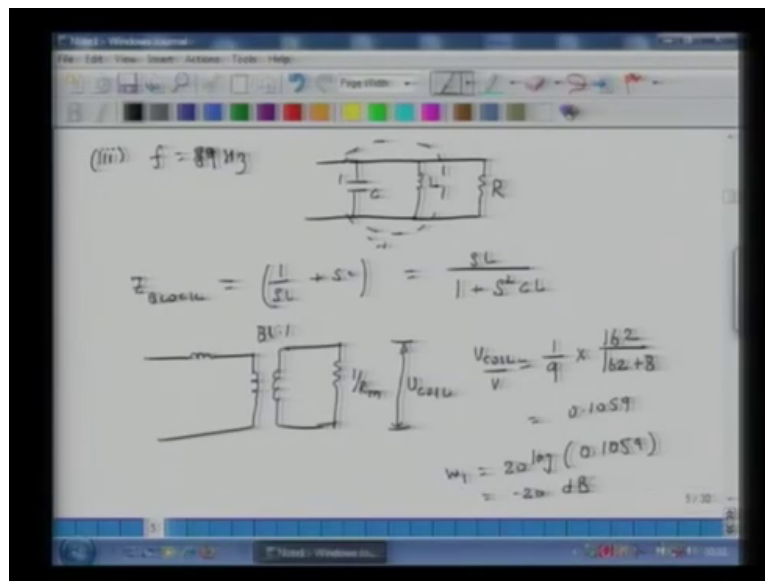 Note1 - Windows Journal
File Edit View Insert Actions Tools Help
Page Width
(iii) f = 89 Hz
C
L
R
Z_BLOCK = (1/SL + SC) = SL / (1 + S²CL)
Bl:1
1/Rm
UCOIL
VCOIL/V = 1/9 × 162/(162+8)
= 0.1059
W1 = 20 log (0.1059)
= -20 dB
5
Note1 - Windows Jou...